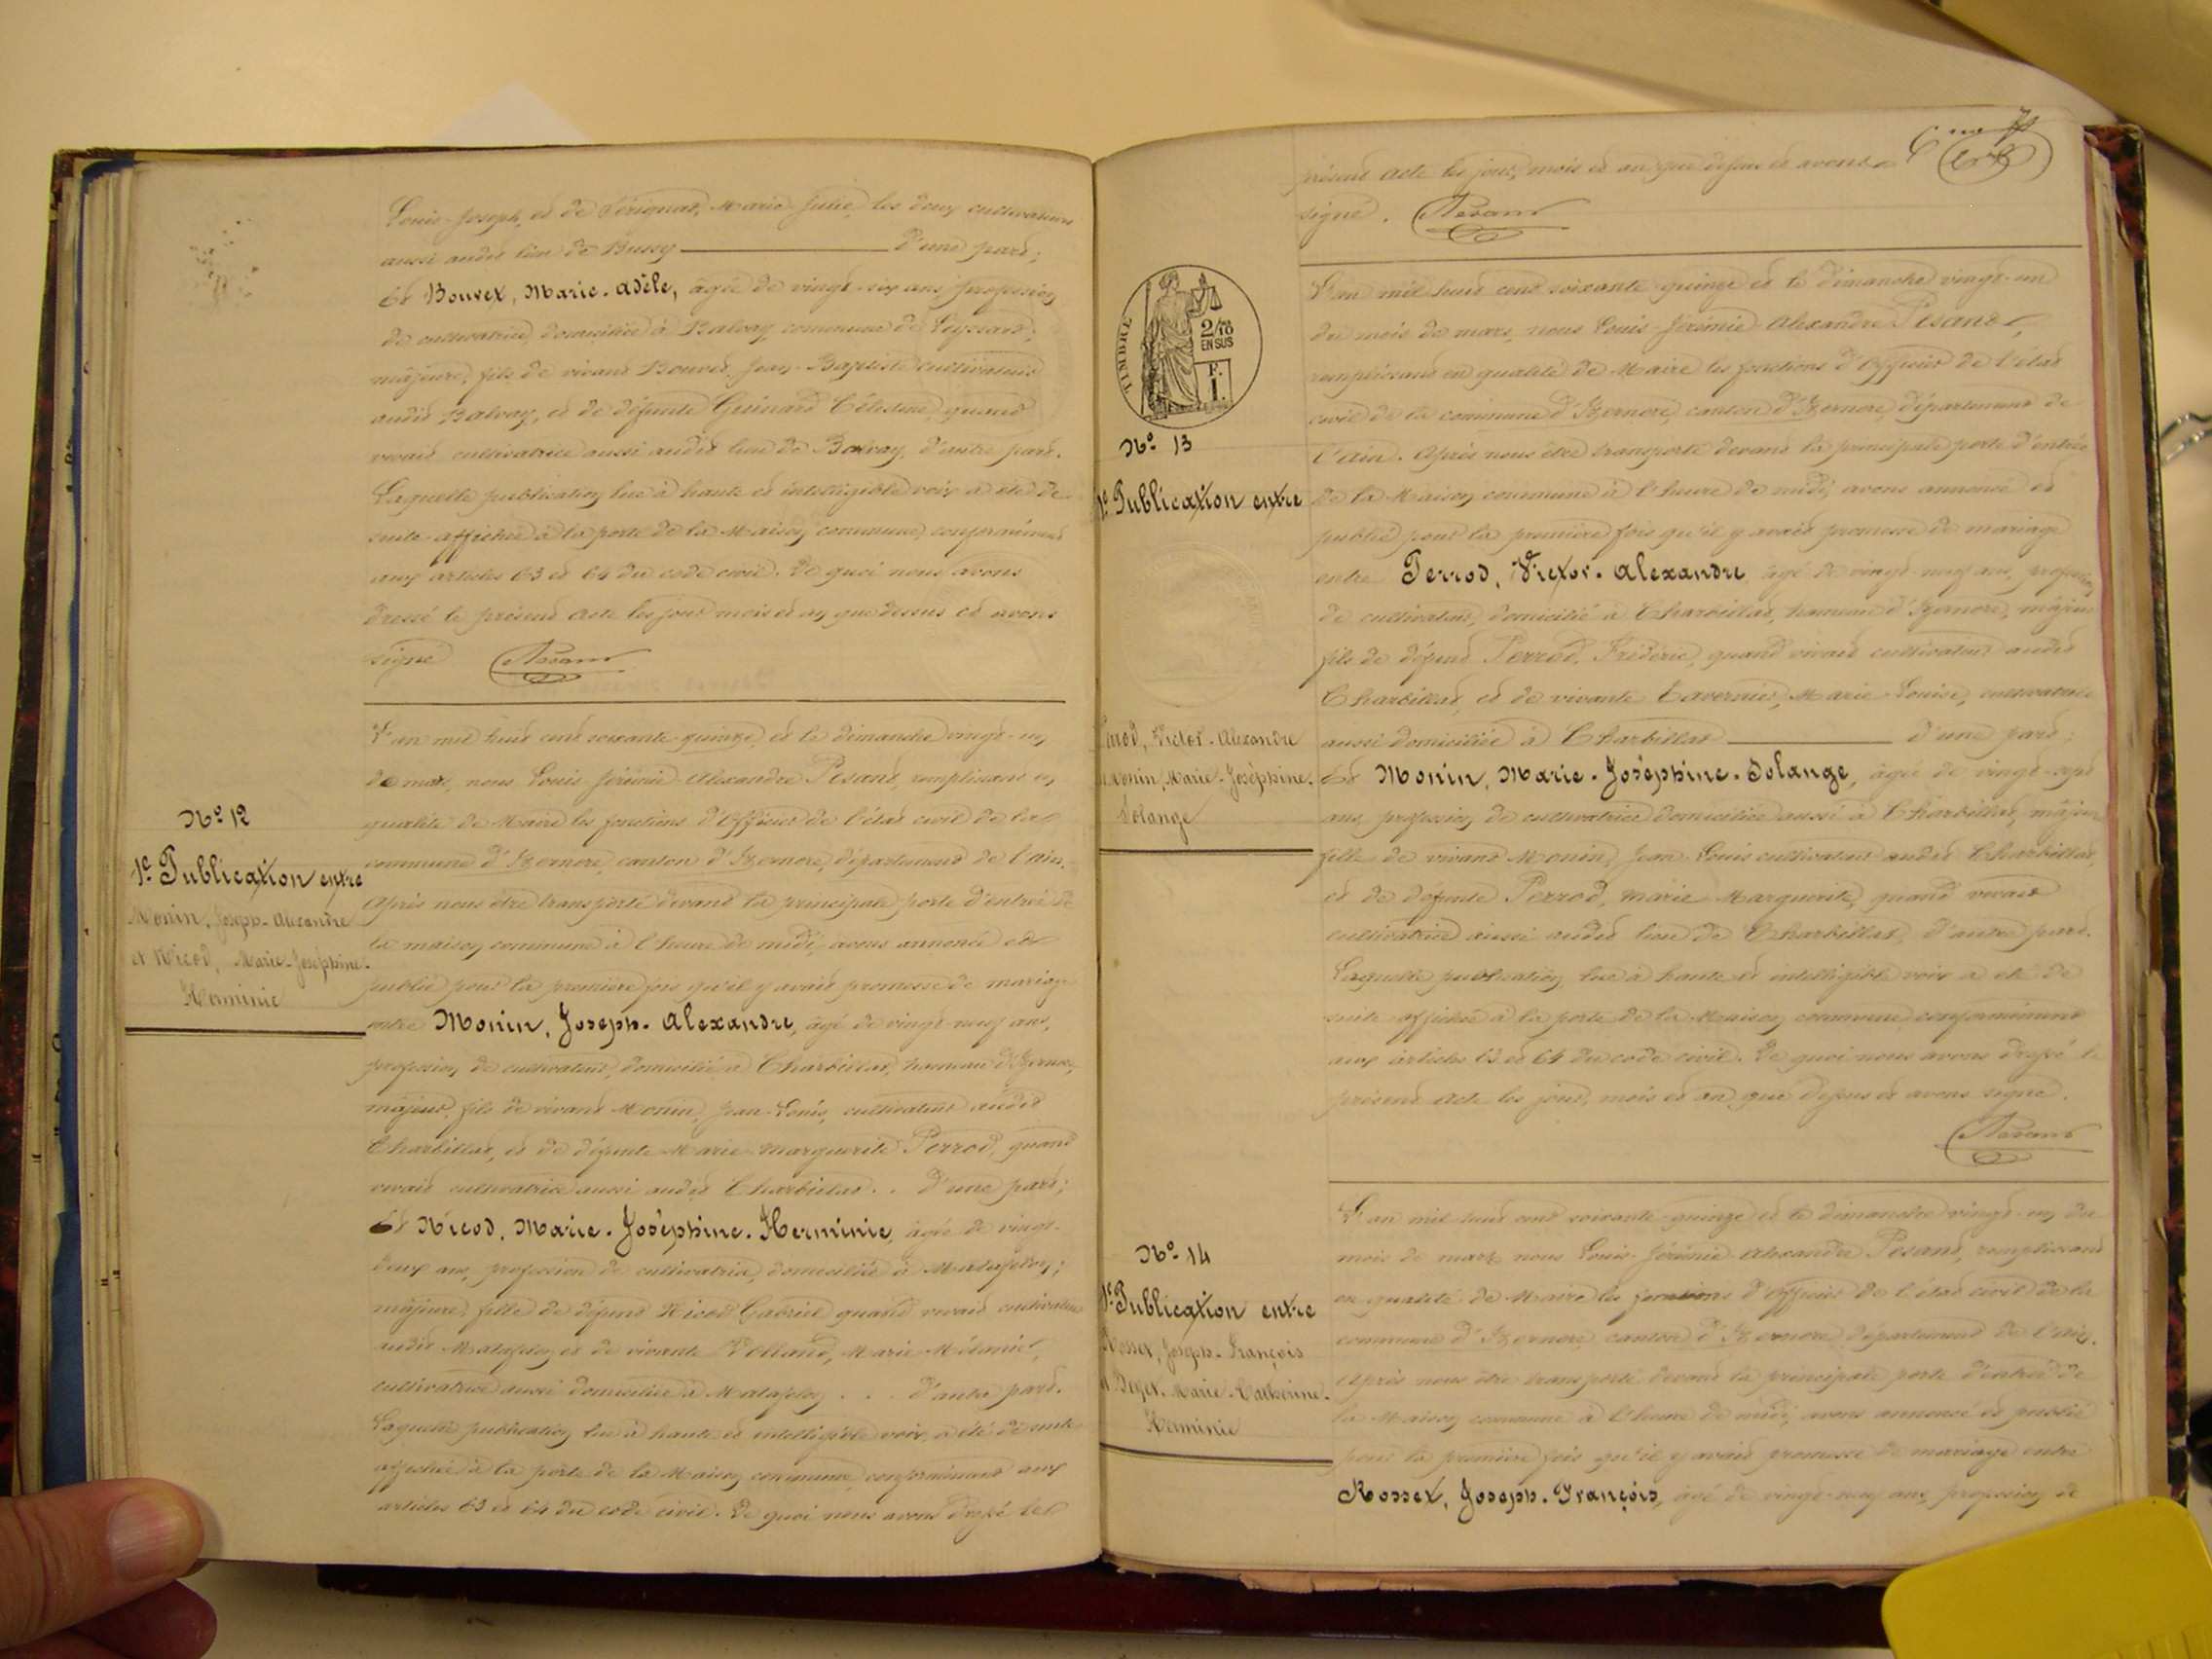 Louis-Joseph, et de Sérignat, Marie Julie, les deux cultivateurs
aussi audit lieu de Bussy d'une part;
Et Bouvet, Marie-Adèle, âgée de vingt-six ans, profession
de cultivatrice, domiciliée à Balvay, commune de Leyssard;
majeure, fils de vivant Bouvet, Jean-Baptiste cultivateur
audit Balvay, et de défunte Guinard Célestine, quand
vivait cultivatrice aussi audit lieu de Balvay, d'autre part.
Laquelle publication lue à haute et intelligible voix a été de
suite affichée à la porte de la Maison commune, conformément
aux articles 63 et 64 du code civil. De quoi nous avons
dressé le présent acte les jour mois et an que dessus et avons
signé Pesant
N° 12
1e Publication entre
Monin, Joseph-Alexandre
et Nicod, Marie-Joséphine-
Herminie
L'an mil huit cent soixante-quinze et le dimanche vingt-un
de mars, nous Louis Jérémie Alexandre Pesant, remplissant en
qualité de Maire les fonctions d'Officier de l'état civil de la
commune d'Izernore, canton d'Izernore, département de l'Ain.
Après nous être transporté devant la principale porte d'entrée de
la maison commune à l'heure de midi, avons annoncé et
publié pour la première fois qu'il y avait promesse de mariage
entre Monin, Joseph-Alexandre, âgé de vingt-neuf ans,
profession de cultivateur, domicilié à Charbillat, hameau d'Izernore,
majeur, fils de vivant Monin, Jean-Louis, cultivateur audit
Charbillat, et de défunte Marie Marguerite Perrod, quand
vivait cultivatrice aussi audit Charbillat . . d'une part;
Et Nicod, Marie-Joséphine-Herminie, âgée de vingt-
deux ans, profession de cultivatrice, domiciliée à Matafelon;
majeure, fille de défunt Nicod Gabriel quand vivait cultivateur
audit Matafelon et de vivante Volland, Marie Mélanie,
cultivatrice aussi domiciliée à Matafelon . . . d'autre part.
Laquelle publication lue à haute et intelligible voix, a été de suite
affichée à la porte de la Maison commune, conformément aux
articles 63 et 64 du code civil. De quoi nous avons dressé le
présent acte les jour, mois et an que dessus et avons
signé. Pesant
TIMBRE
2/10
EN SUS
F.
1.
N° 13
1e Publication entre
Perrod, Victor-Alexandre
Monin, Marie-Joséphine-
Solange
L'an mil huit cent soixante-quinze et le dimanche vingt-un
du mois de mars, nous Louis Jérémie Alexandre Pesant,
remplissant en qualité de Maire les fonctions d'Officier de l'état
civil de la commune d'Izernore, canton d'Izernore, département de
l'Ain. Après nous être transporté devant la principale porte d'entrée
de la Maison commune à l'heure de midi, avons annoncé et
publié pour la première fois qu'il y avait promesse de mariage
entre Perrod, Victor-Alexandre âgé de vingt-neuf ans, profession
de cultivateur, domicilié à Charbillat, hameau d'Izernore, majeur
fils de défunt Perrod, Frédéric, quand vivait cultivateur audit
Charbillat, et de vivante Tavernier, Marie-Louise, cultivatrice
aussi domiciliée à Charbillat d'une part;
Et Monin, Marie-Joséphine-Solange, âgée de vingt-sept
ans, profession de cultivatrice domiciliée aussi à Charbillat, majeure
fille de vivant Monin, Jean Louis cultivateur audit Charbillat,
et de défunte Perrod, Marie Marguerite, quand vivait
cultivatrice aussi audit lieu de Charbillat, d'autre part.
Laquelle publication lue à haute et intelligible voix a été de
suite affichée à la porte de la Maison commune conformément
aux articles 63 et 64 du code civil. De quoi nous avons dressé le
présent acte les jour, mois et an que dessus et avons signé.
Pesant
N° 14
1e Publication entre
Rosset, Joseph-François
Marie-Catherine-
Herminie
L'an mil huit cent soixante-quinze et le dimanche vingt-un du
mois de mars nous Louis-Jérémie-Alexandre Pesant, remplissant
en qualité de Maire les fonctions d'Officier de l'état civil de la
commune d'Izernore, canton d'Izernore, département de l'Ain.
Après nous être transporté devant la principale porte d'entrée de
la Maison commune à l'heure de midi, avons annoncé et publié
pour la première fois qu'il y avait promesse de mariage entre
Rosset, Joseph-François, âgé de vingt-neuf ans, profession de